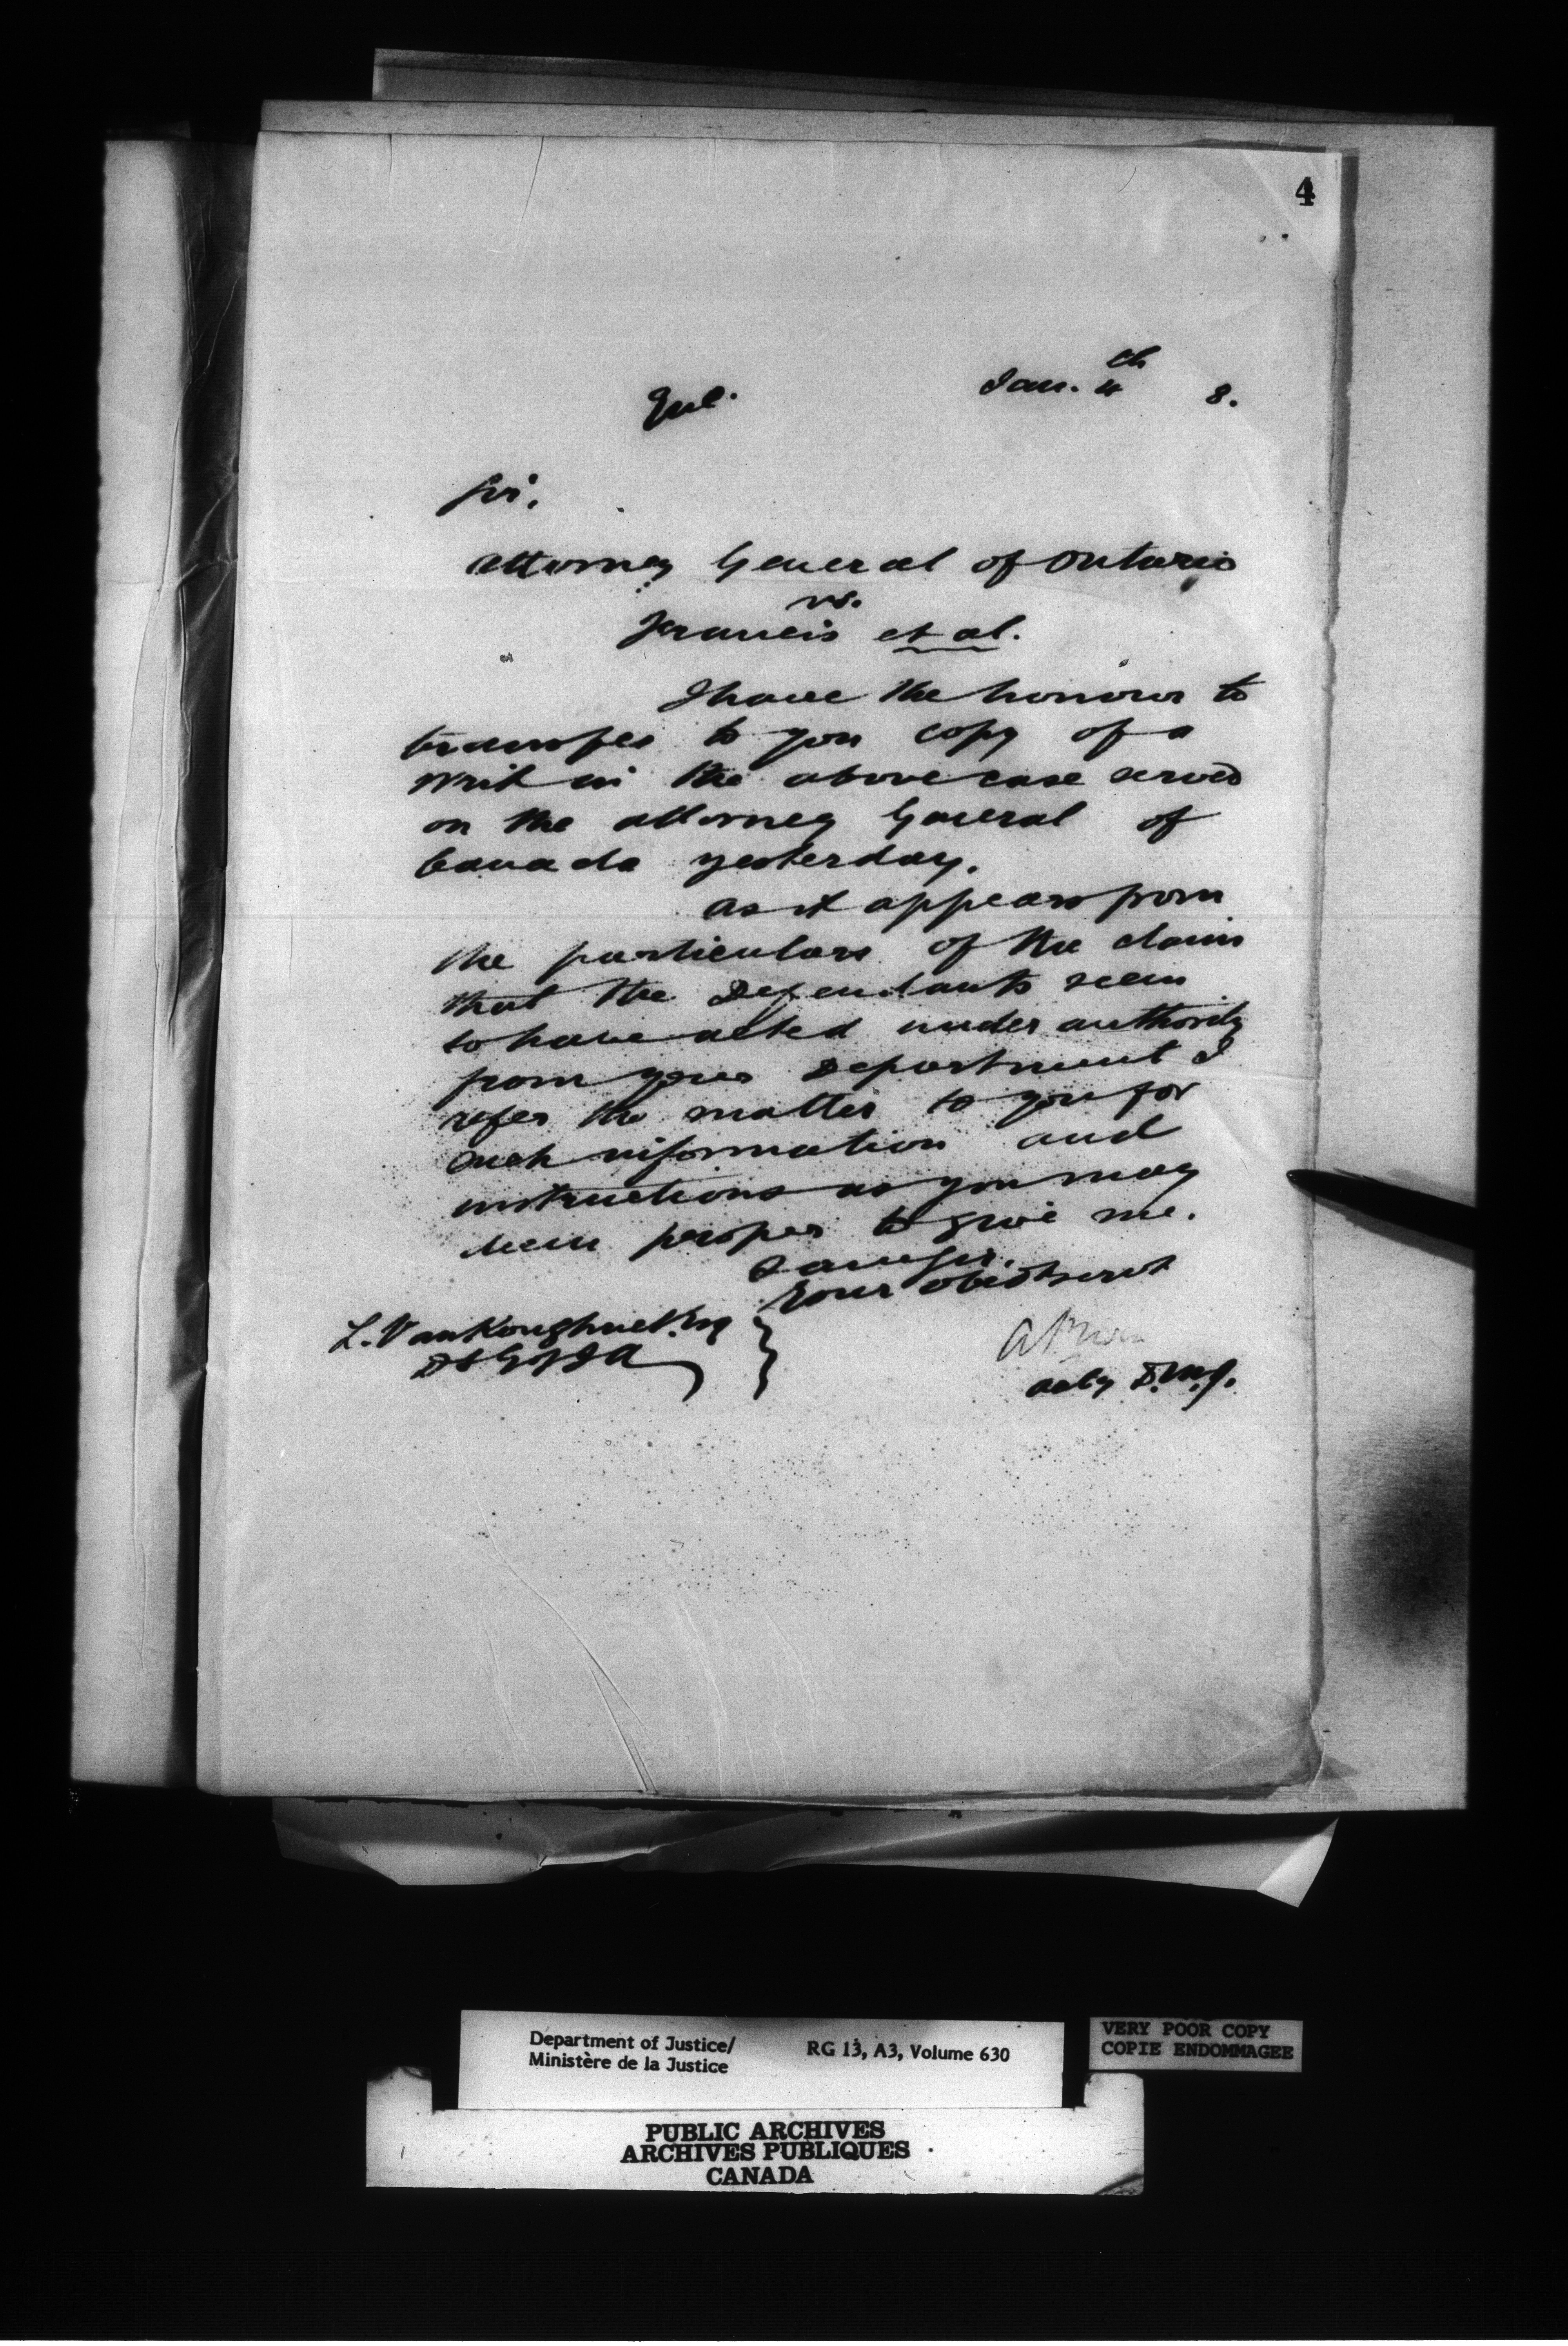 4
Encl. Jan. 4th 8.
Sir,
Attorney General of Ontario
vs.
Francis et al.
I have the honour to
transfer to you copy of a
writ in the above case served
on the Attorney General of
Canada yesterday.
As it appears from
the particulars of the claim
that the Defendants seem
to have acted under authority
from your Department I
refer the matter to you for
such information and
instructions as you may
deem proper to give me.
I am Sir,
Your obedt servt
L. VanKoughnet Esq
D S G of I A
A
Actg D.M.J.
Department of Justice/ RG 13, A3, Volume 630
Ministère de la Justice
VERY POOR COPY
COPIE ENDOMMAGEE
PUBLIC ARCHIVES
ARCHIVES PUBLIQUES
CANADA